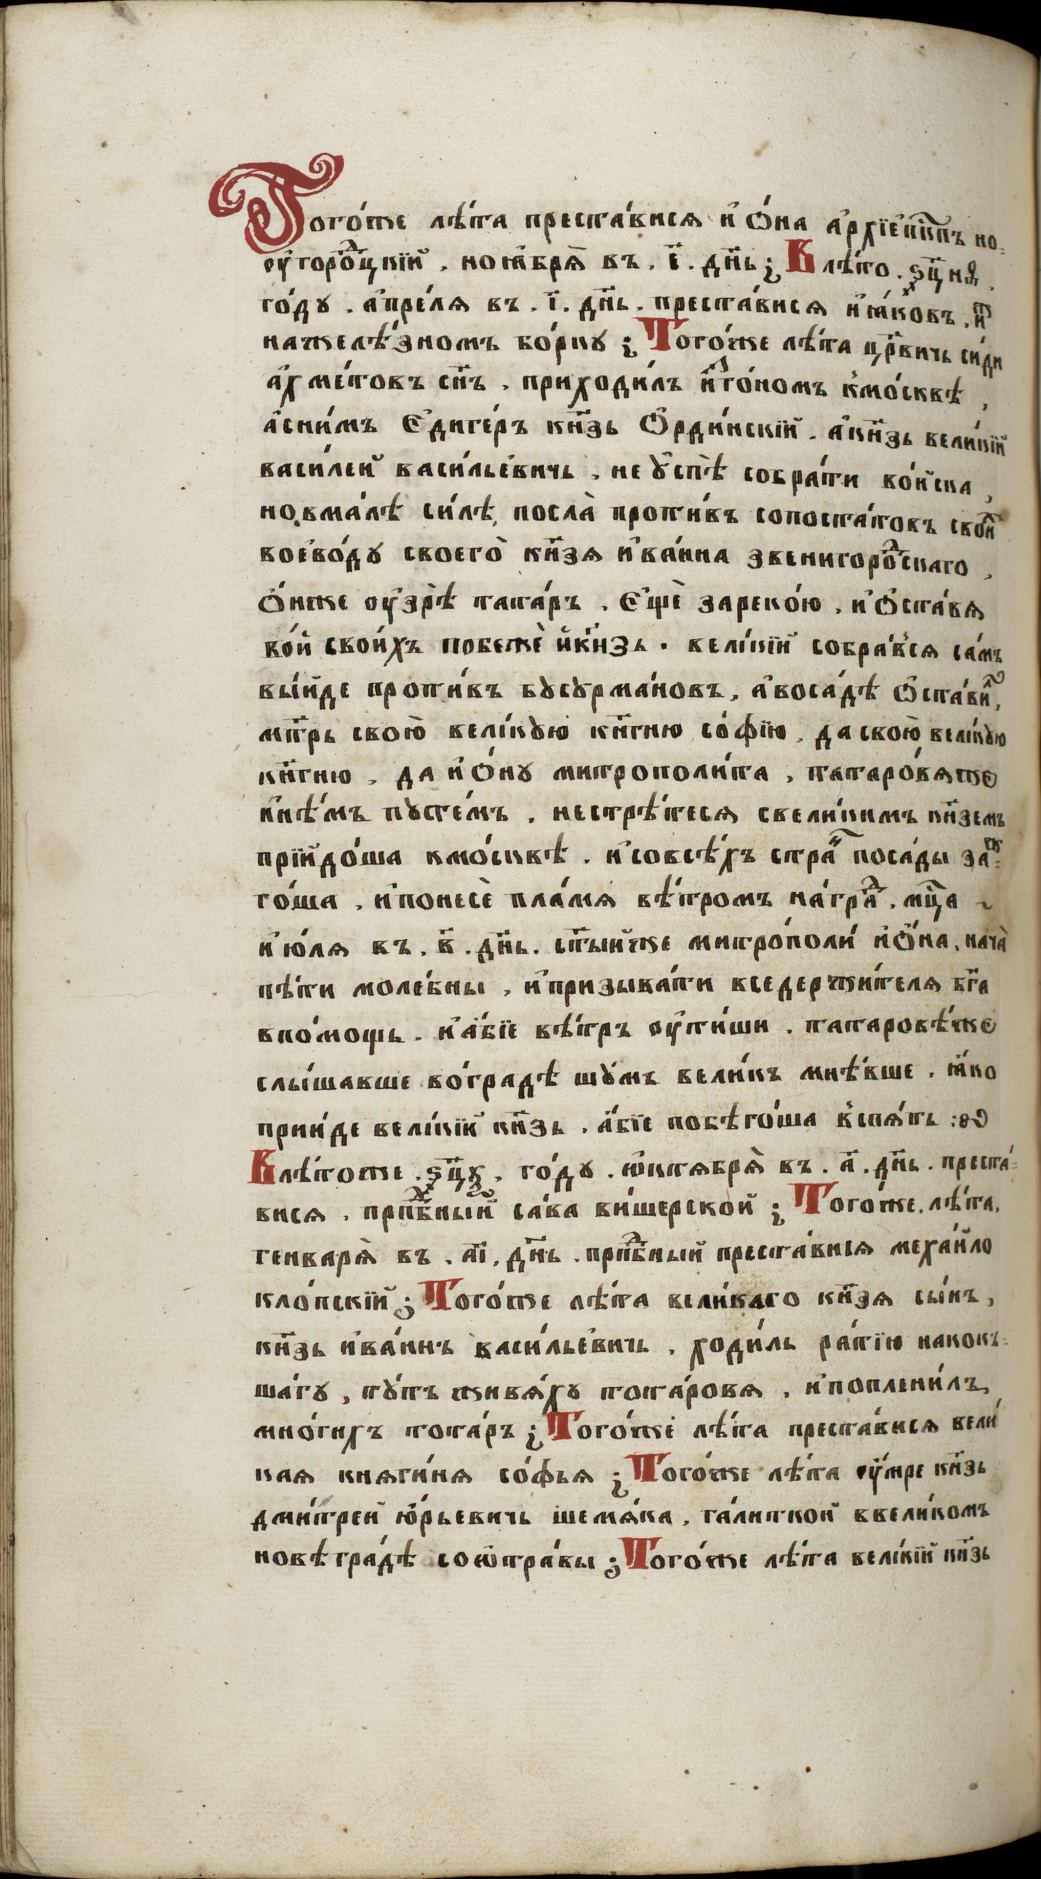 Тогѡ́же лѣ́та преста́висѧ и҆ Ѻ҆́на а҆рхїепⷭ҇кпъ но-
ѹгоро́ⷣцкїй . ноꙗ́брѧ̀ въ . е҃ . дн҃ь ; В лѣ́то . ѕ҃цн҃ѳ .
го́ду . а҆пре́лѧ въ . і҃ . дн҃ь . преста́висѧ и҆ꙗ́ковъ , и҆ⷤ
нажелѣ́зномъ бо́рку ; Тогѡ́же лѣ́та црⷭ҇вичь си́ди
а҆хме́товъ сн҃ъ . приходи́лъ и҆ⷥго́номъ к̾мо́сквѣ ,
а҆сни́мъ Е҆диге́ръ кн҃зь Ѻ҆рди́нскїй . а҆кн҃зь вели́кїй
васи́лей васи́льевичь . не ꙋ҆спѣ̀ собра́ти во́йска ,
но,вма́лѣ си́лѣ, посла̀ проти́въ сопоста́товъ свои́ⷯ
воево́ду своего̀ кн҃зѧ и҆ва́нна звенигоро́ⷣскаго ,
Ѻ҆́нже ѹ҆зрѣ̀ тата́ръ . Е҆щѐ зареко́ю , и҆Ѻ҆ста́вѧ
во́й свои́хъ побежѐ и҆кн҃зь . вели́кїй собра́всѧ са́мъ
вы́йде проти́въ бусурма́новъ , а҆воса́дѣ Ѻ҆ста́виⷧ ,
мт҃рь свою̀ вели́кꙋю кн҃гню со́фїю , да свою̀ вели́кꙋю
кн҃гню , да и҆ Ѻ҆́ну митрополи́та , татаро́вѧже
и҆нѣ́мъ пꙋте́мъ , нестрѣ́тесѧ свели́кимъ кн҃земъ
прїйдо́ша кмо́сквѣ . и҆совсѣ́хъ стра́ⷩ поса́ды заⷤ-
го́ша , и҆понесѐ пла́мѧ вѣ́тромъ на́граⷣ . мц҃а
и҆ю́лѧ въ . в҃ . дн҃ь . ст҃ы́йже митро́поли́ и҆Ѻ҆́на , нача̀
пѣ́ти моле́бны , и҆призыва́ти вседержи́телѧ бг҃а
впо́мощь . и҆а҆́бїе вѣ́тръ ѹ҆ти́ши . татаровѣ́же
слы́шавше во́градѣ шꙋ́мъ вели́къ мнѣ́вше . ꙗ҆́ко
прии́де вели́кїй кн҃зь , а҆́бїе побѣго́ша в̾спѧ́ть :
Влѣ́тоже . ѕ҃цѯ҃ . го́ду . ѡ҆ктѧбрѧ̀ въ . а҃ . дн҃ь . преста́-
висѧ . прпⷣбный са́ва ви́шерской ; Тогѡ́же , лѣ́та ,
генварѧ̀ въ . а҃і . дн҃ь . прпⷣбный преста́висѧ меха́йло
кло́пскїй ; Тогѡ́же лѣ́та вели́каго кн҃зѧ сы́нъ ,
кн҃зь и҆ва́ннъ васи́льевичь , ходи́ль ра́тїю накок-
ша́гу , тꙋ́тъ живѧ́хꙋ тота́ровѧ , и҆поплени́лъ
мно́гихъ тота́ръ ; Тогѡ́же лѣ́та преста́висѧ вели́
каѧ кнѧги́нѧ со́фьѧ ; Тогѡ́же лѣ́та ѹ҆́мре кн҃зь
дми́трей ю҆́рьевичь шемѧ́ка , га́литкой ввели́комъ
новѣгра́дѣ соѿтра́вы ; Тогѡ́же лѣ́та вели́кїй кн҃зь